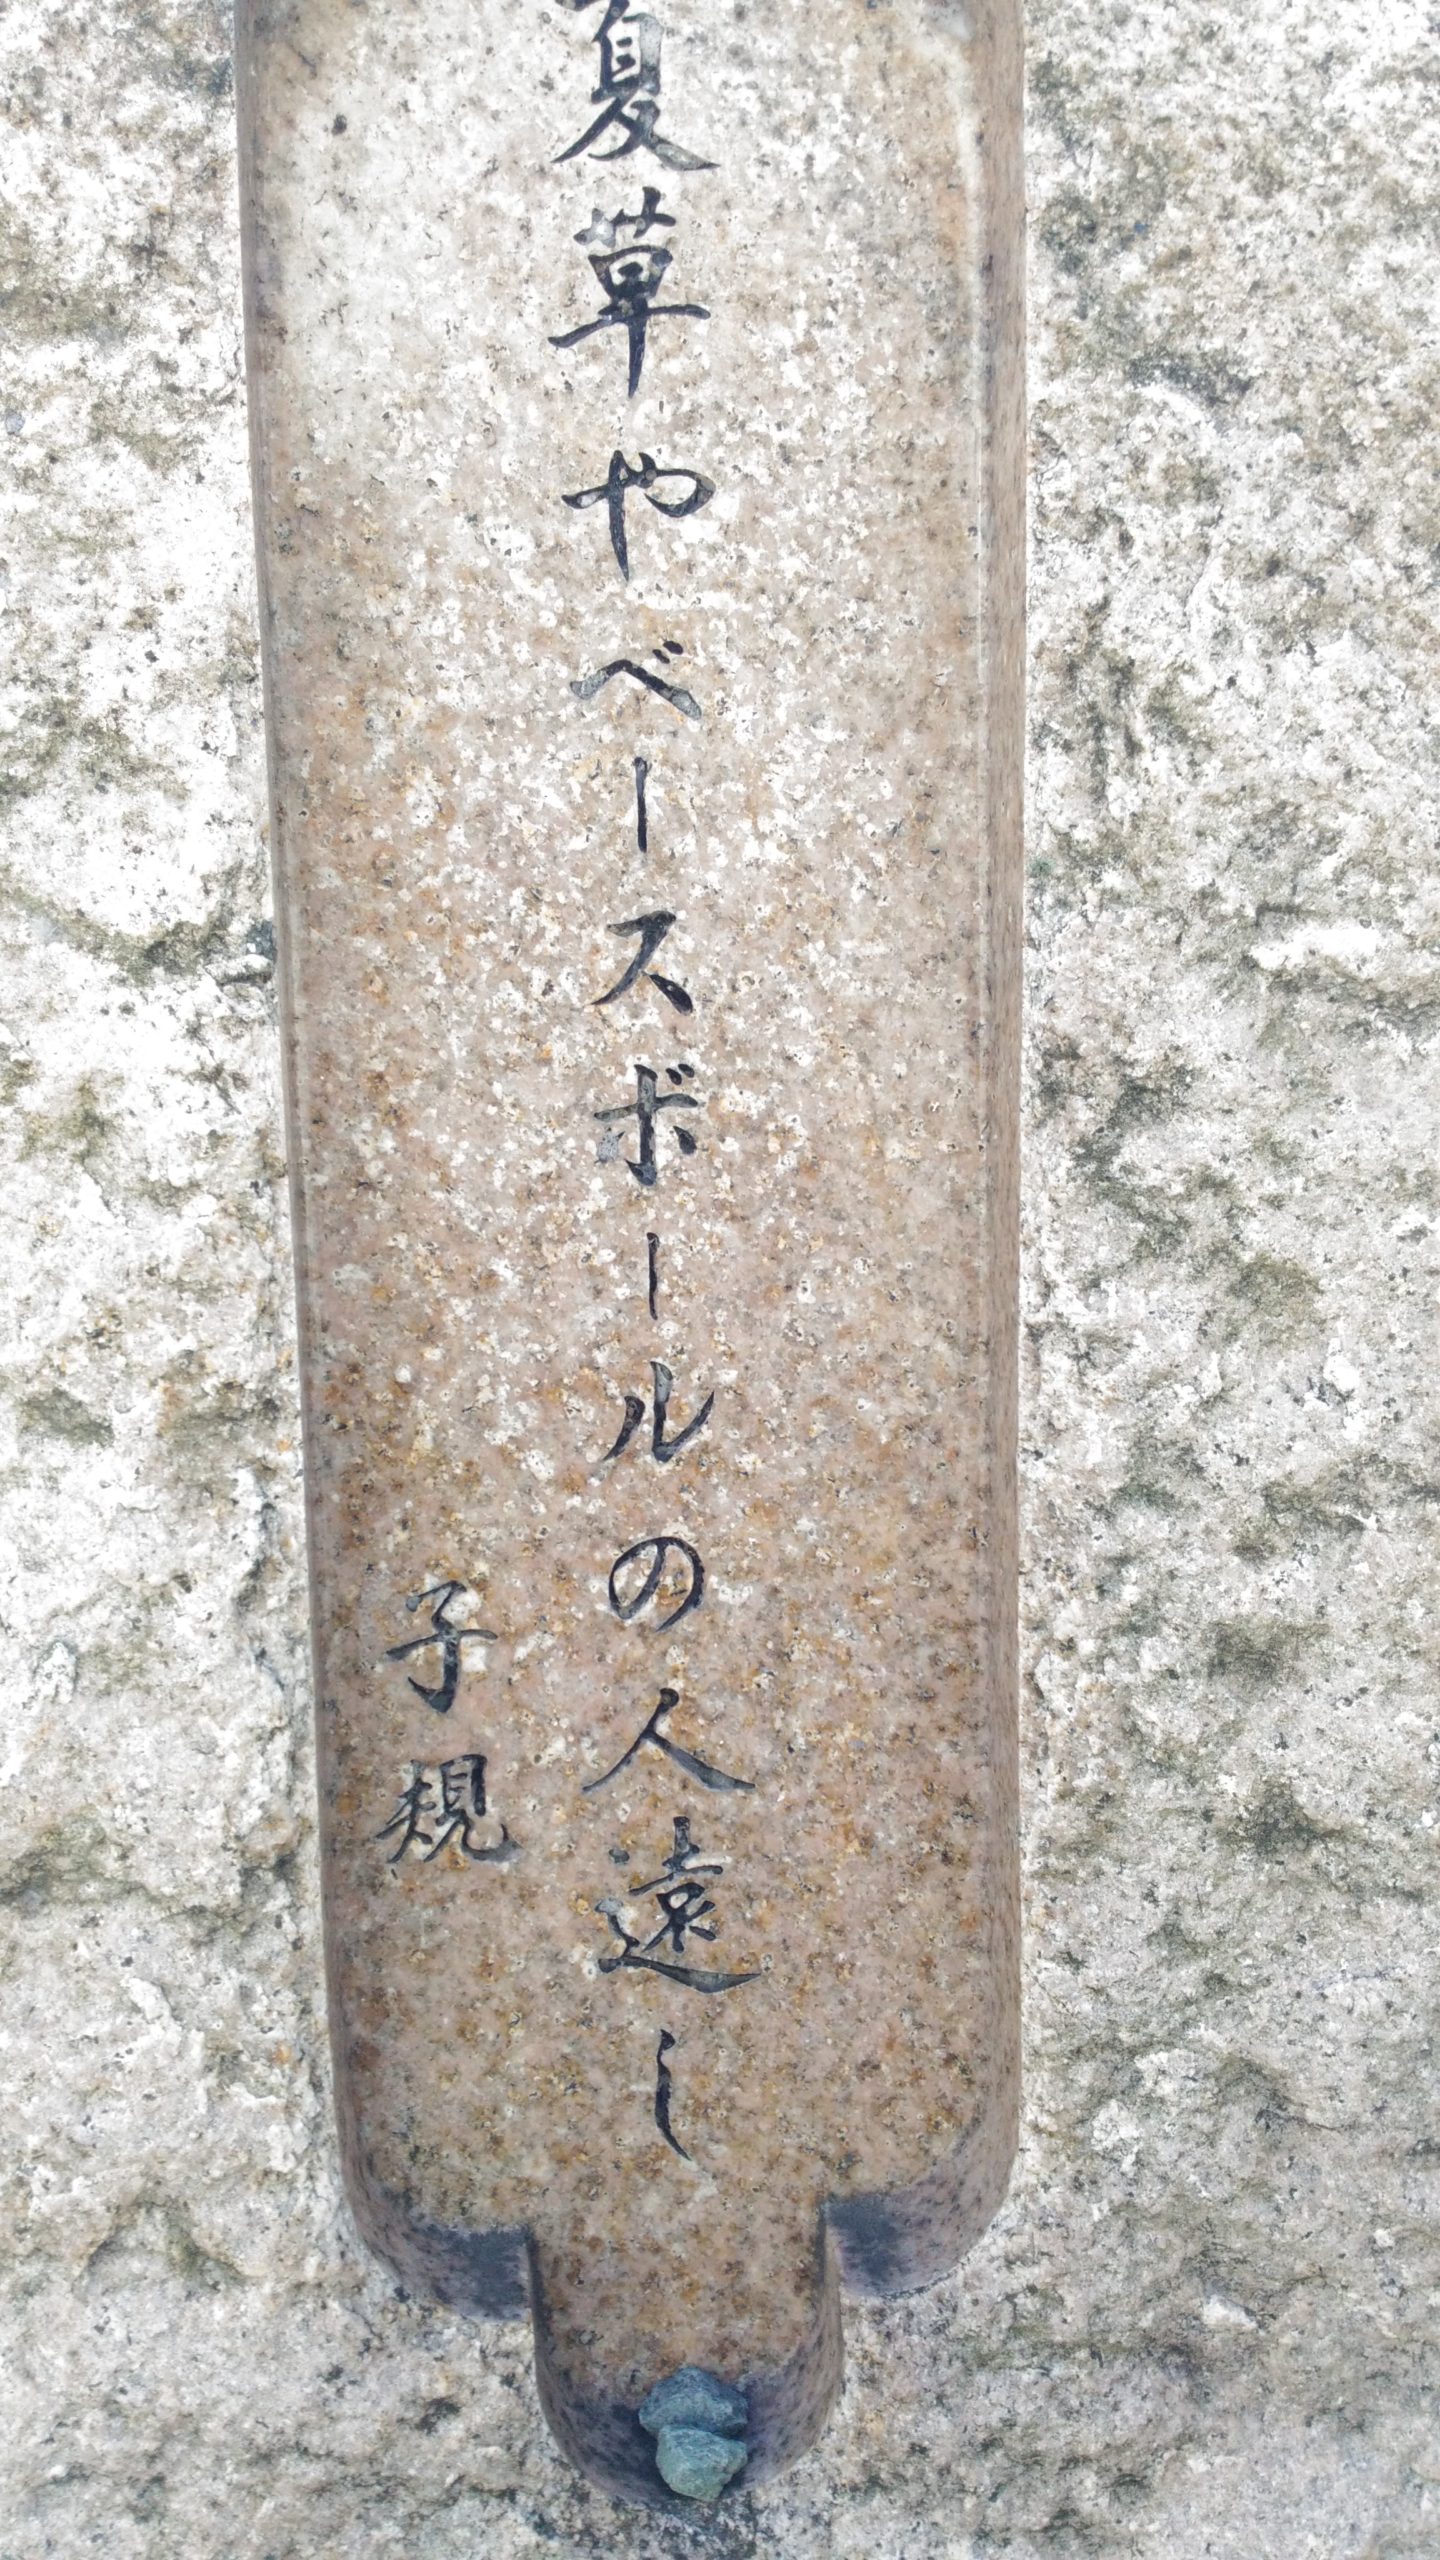 夏草やベースボールの人遠し
子規